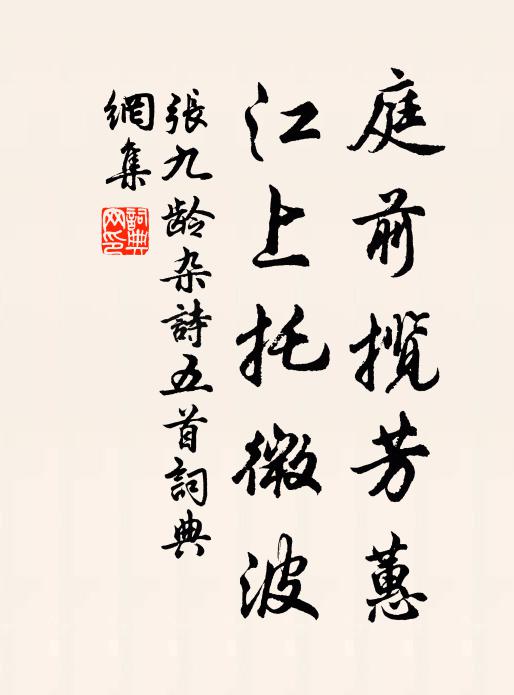 庭前揽芳蕙
江上托微波
張九龄杂詩五首詞典
網集
詞典
网印